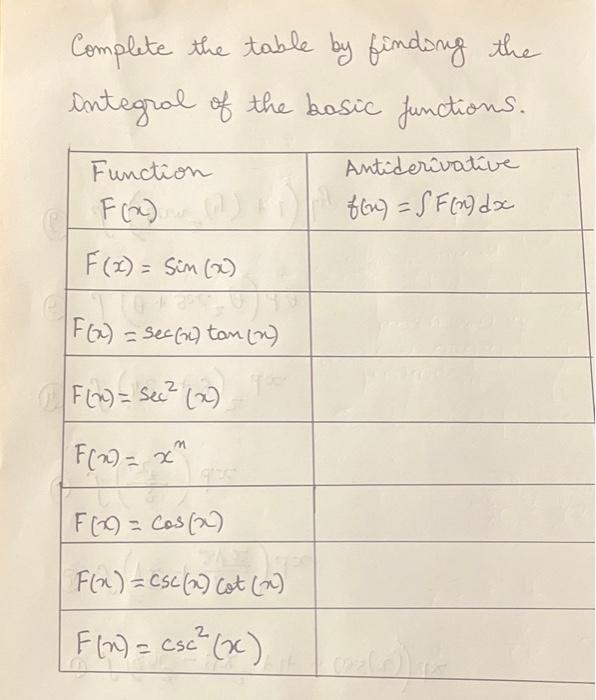 Complete the table by finding the
integral of the basic functions.
Function Antiderivative
F(x) f(x) = ∫F(x)dx
F(x) = Sin(x)
F(x) = sec(x) tan(x)
F(x) = Sec² (x)
F(x) = xⁿ
F(x) = Cos(x)
F(x) = csc(x) Cot(x)
F(x) = csc² (x)